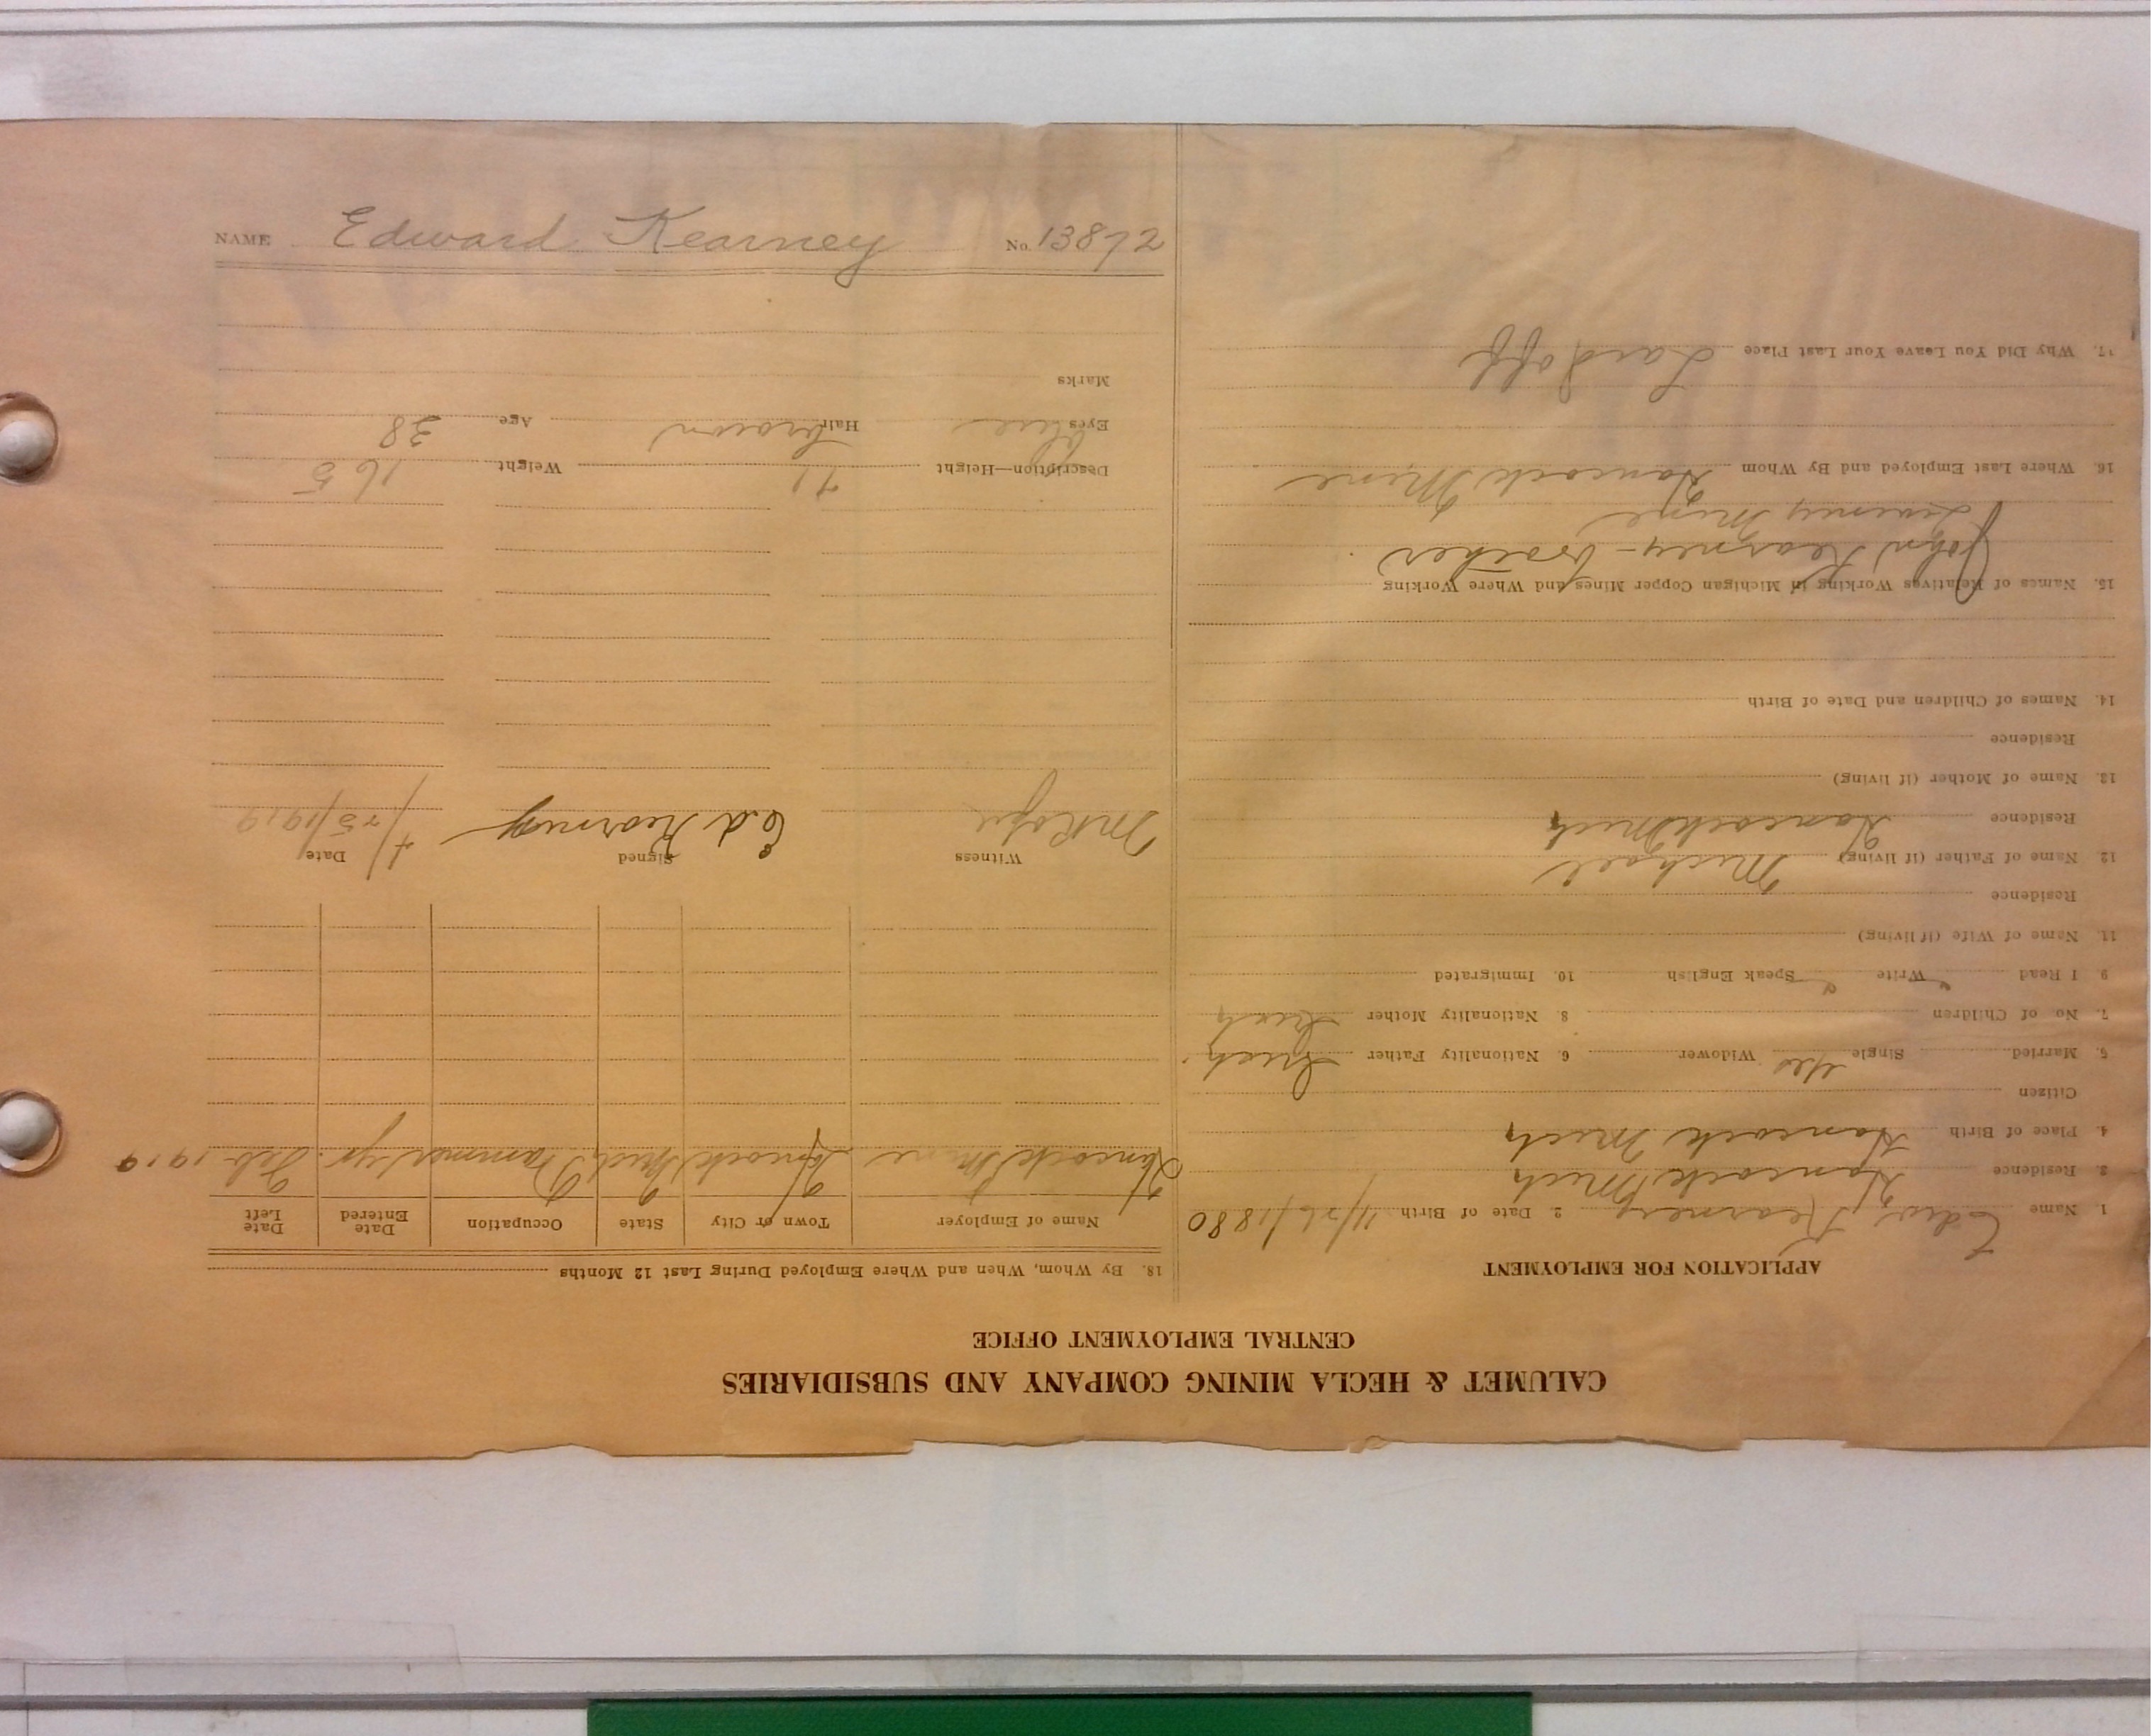 CALUMET & HECLA MINING COMPANY AND SUBSIDIARIES
CENTRAL EMPLOYMENT OFFICE
APPLICATION FOR EMPLOYMENT
1. Name Edw, Kearney 2. Date of Birth 11/26/1880
3. Residence Hancock Mich
4. Place of Birth Hancock Mich
Citizen
5. Married Single yes Widower 6. Nationality Father Irish
7. No. of Children 8. Nationality Mother Irish
9 I Read Write Speak English 10. Immigrated
11. Name of Wife (if living)
Residence
12. Name of Father (if living) Michael
Residence Hancock Mich
13. Name of Mother (if living)
Residence
14. Names of Children and Date of Birth
15. Names of Relatives Working in Michigan Copper Mines and Where Working
John Kearney - brother
Mine
16. Where Last Employed and By Whom Hancock Mine
17. Why Did You Leave Your Last Place Laid off
18. By Whom, When and Where Employed During Last 12 Months
Name of Employer Town or City State Occupation Date Entered Date Left
Hancock Mine Hancock Mich Trammer 1 yr. Feb 1919
Witness Signed Date
Ed Kearney
Description—Height 71 Weight 165
Eyes blue Hair brown Age 38
Marks
NAME Edward Kearney No. 13872